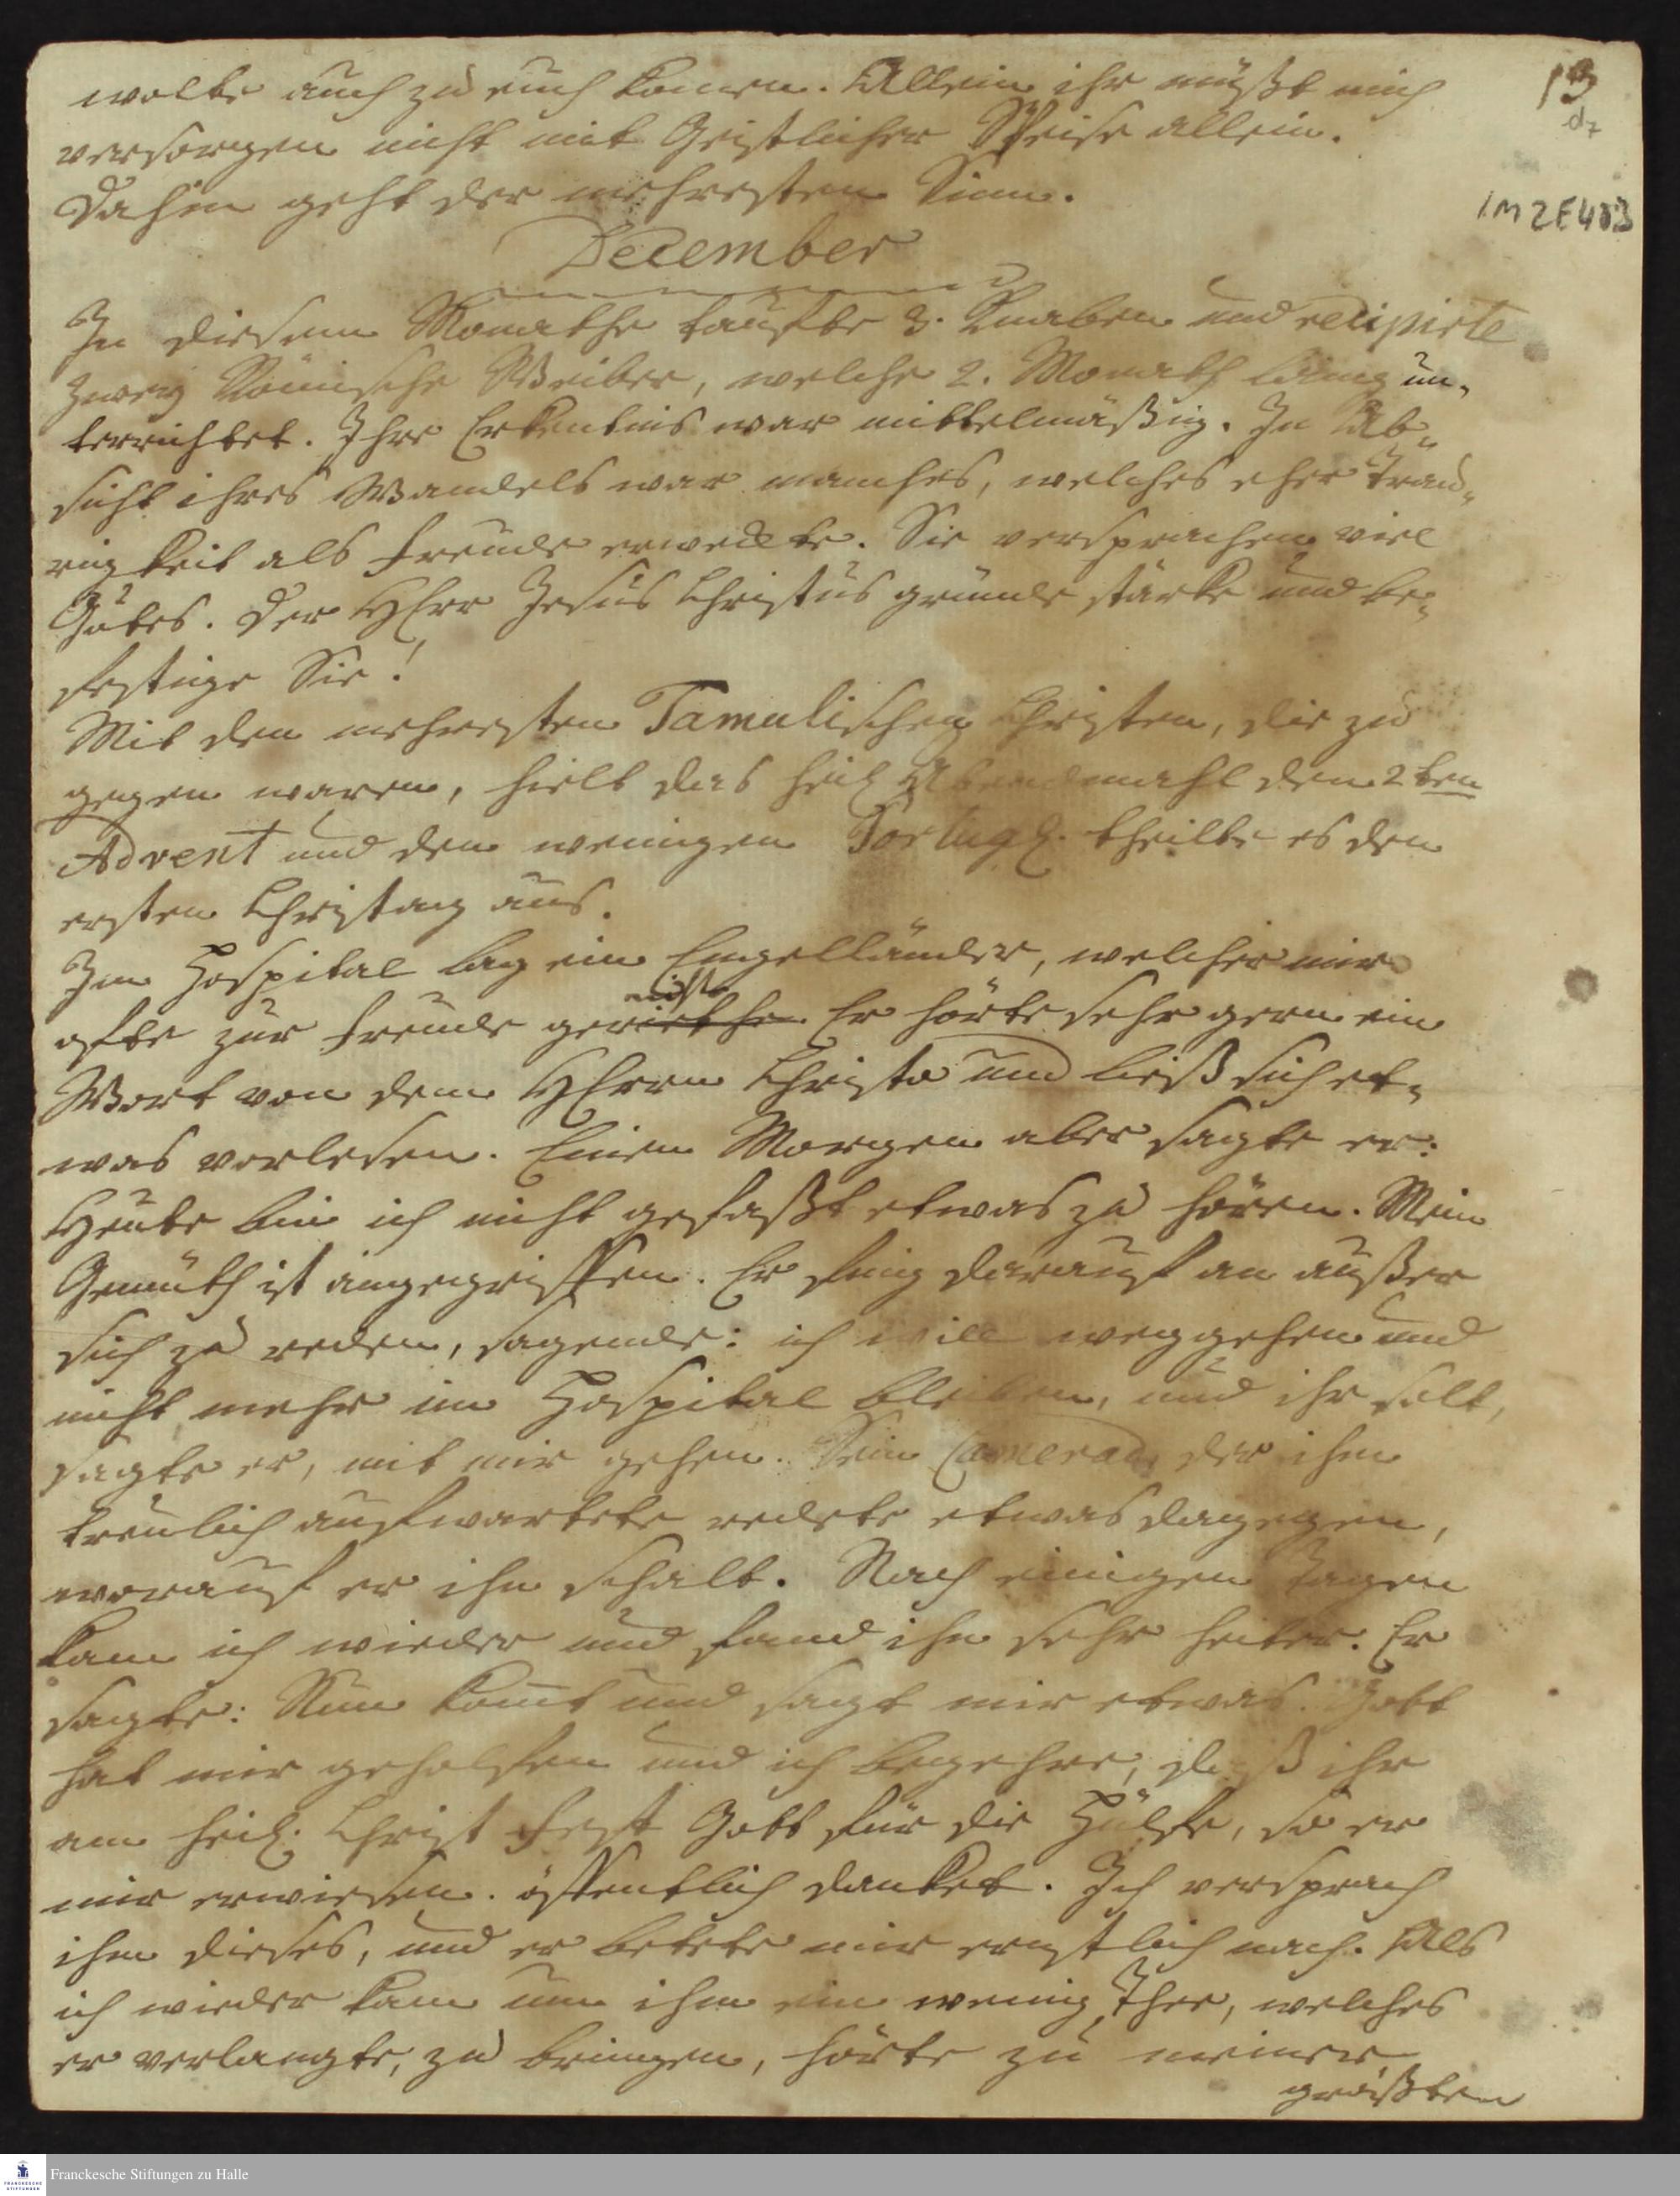 wolte auch zu euch kom̅en. Allein ihr müßt mich
versorgen nicht mit Geistlicher Speise allein.
Dahin geht der mehresten Sinn.
December
In diesem Monathe taufte 3. Knaben und recipirte
zwey Römische Weiber, welche 2. Monath lang un„
terrichtet. Ihre Erkentnis war mittelmäßig. In Ab„
sicht ihres Wandels war manches, welches eher Trau„
rigkeit als Freude erweckte. Sie versprachen viel
Gutes. Der HErr Jesus Christus gründe stärke und be„
festige Sie!
Mit den mehresten Tamulischen Christen, die zu
gegen waren, hielt das heil Abendmahl den 2ten
Advent und den wenigen Portug. theilte es den
ersten Christag aus.
Im Hospital lag ein Engelländer, welcher mir
ofte zur Freude gereichte. Er hörte sehr gern ein
Wort von dem HErrn Christo und ließ sich et„
was vorlesen. Einen Morgen aber sagte er:
Heute bin ich nicht gefaßt etwas zu hören. Mein
Gemüth ist angegriffen. Er fing darauf an außer
sich zu reden, sagende: ich will weggehen und
nicht mehr im Hospital bleiben, und ihr solt,
sagte er, mit mir gehen. Sein Camerad, der ihm
treulich aufwartete redete etwas dagegen,
worauf er ihn schalt. Nach einigen Tagen
kam ich wieder und fand ihn sehr heiter. Er
sagte: Nun kom̅t und sagt mir etwas. Gott
hat mir geholfen und ich begehre, daß ihr
am heil. Christ Fest Gott für die Hülfe, so er
mir erwiesen. öffentlich danket. Ich versprach
ihm dieses, und er betete mir ernstlich nach. Als
ich wieder kam um ihm ein wenig Thee, welches
er verlangte, zu bringen, hörte zu meiner
größten
13
d7
1M 2E 4 03
Franckesche Stiftungen zu Halle
FRANCKESCHE
STIFTUNGEN